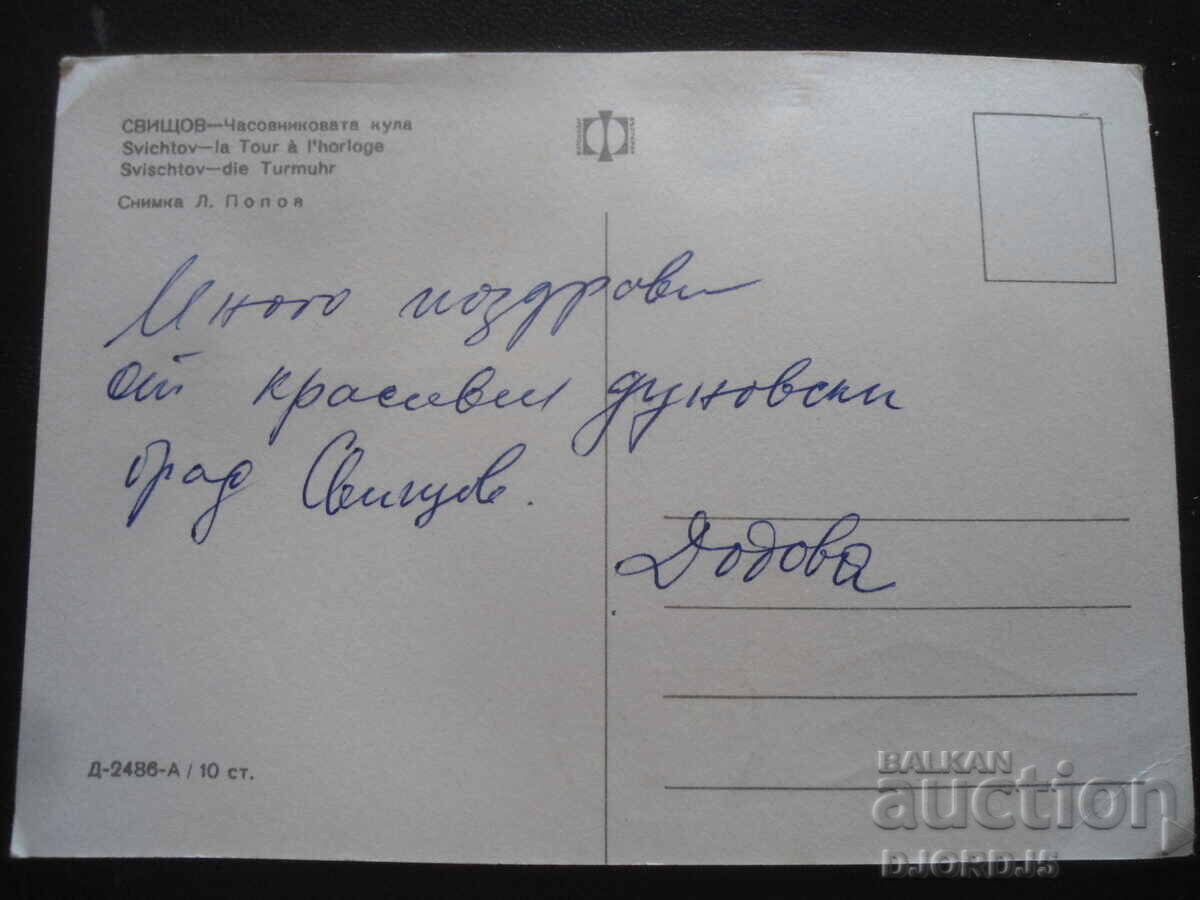 СВИЩОВ—Часовниковата кула
Svichtov—la Tour à l'horloge
Svischtov—die Turmuhr
Снимка Л. Попов
Много поздрави
от красивия дуновски
град Свищов.
Додова
Д-2486-А / 10 ст.
BALKAN
auction
DJORDJ5